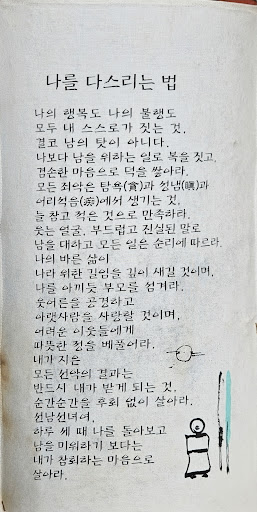 나를 다스리는 법
나의 행복도 나의 불행도
모두 내 스스로가 짓는 것,
결코 남의 탓이 아니다.
나보다 남을 위하는 일로 복을 짓고,
겸손한 마음으로 덕을 쌓아라.
모든 죄악은 탐욕(貪)과 성냄(瞋)과
어리석음(痴)에서 생기는 것,
늘 참고 적은 것으로 만족하라.
웃는 얼굴, 부드럽고 진실된 말로
남을 대하고 모든 일은 순리에 따르라.
나의 바른 삶이
나라 위한 길임을 깊이 새길 것이며,
나를 아끼듯 부모를 섬겨라.
웃어른을 공경하고
아랫사람을 사랑할 것이며,
어려운 이웃들에게
따뜻한 정을 베풀어라.
내가 지은
모든 선악의 결과는
반드시 내가 받게 되는 것,
순간순간을 후회 없이 살아라.
선남선녀여,
하루 세 때 나를 돌아보고
남을 미워하기 보다는
내가 참회하는 마음으로
살아라.